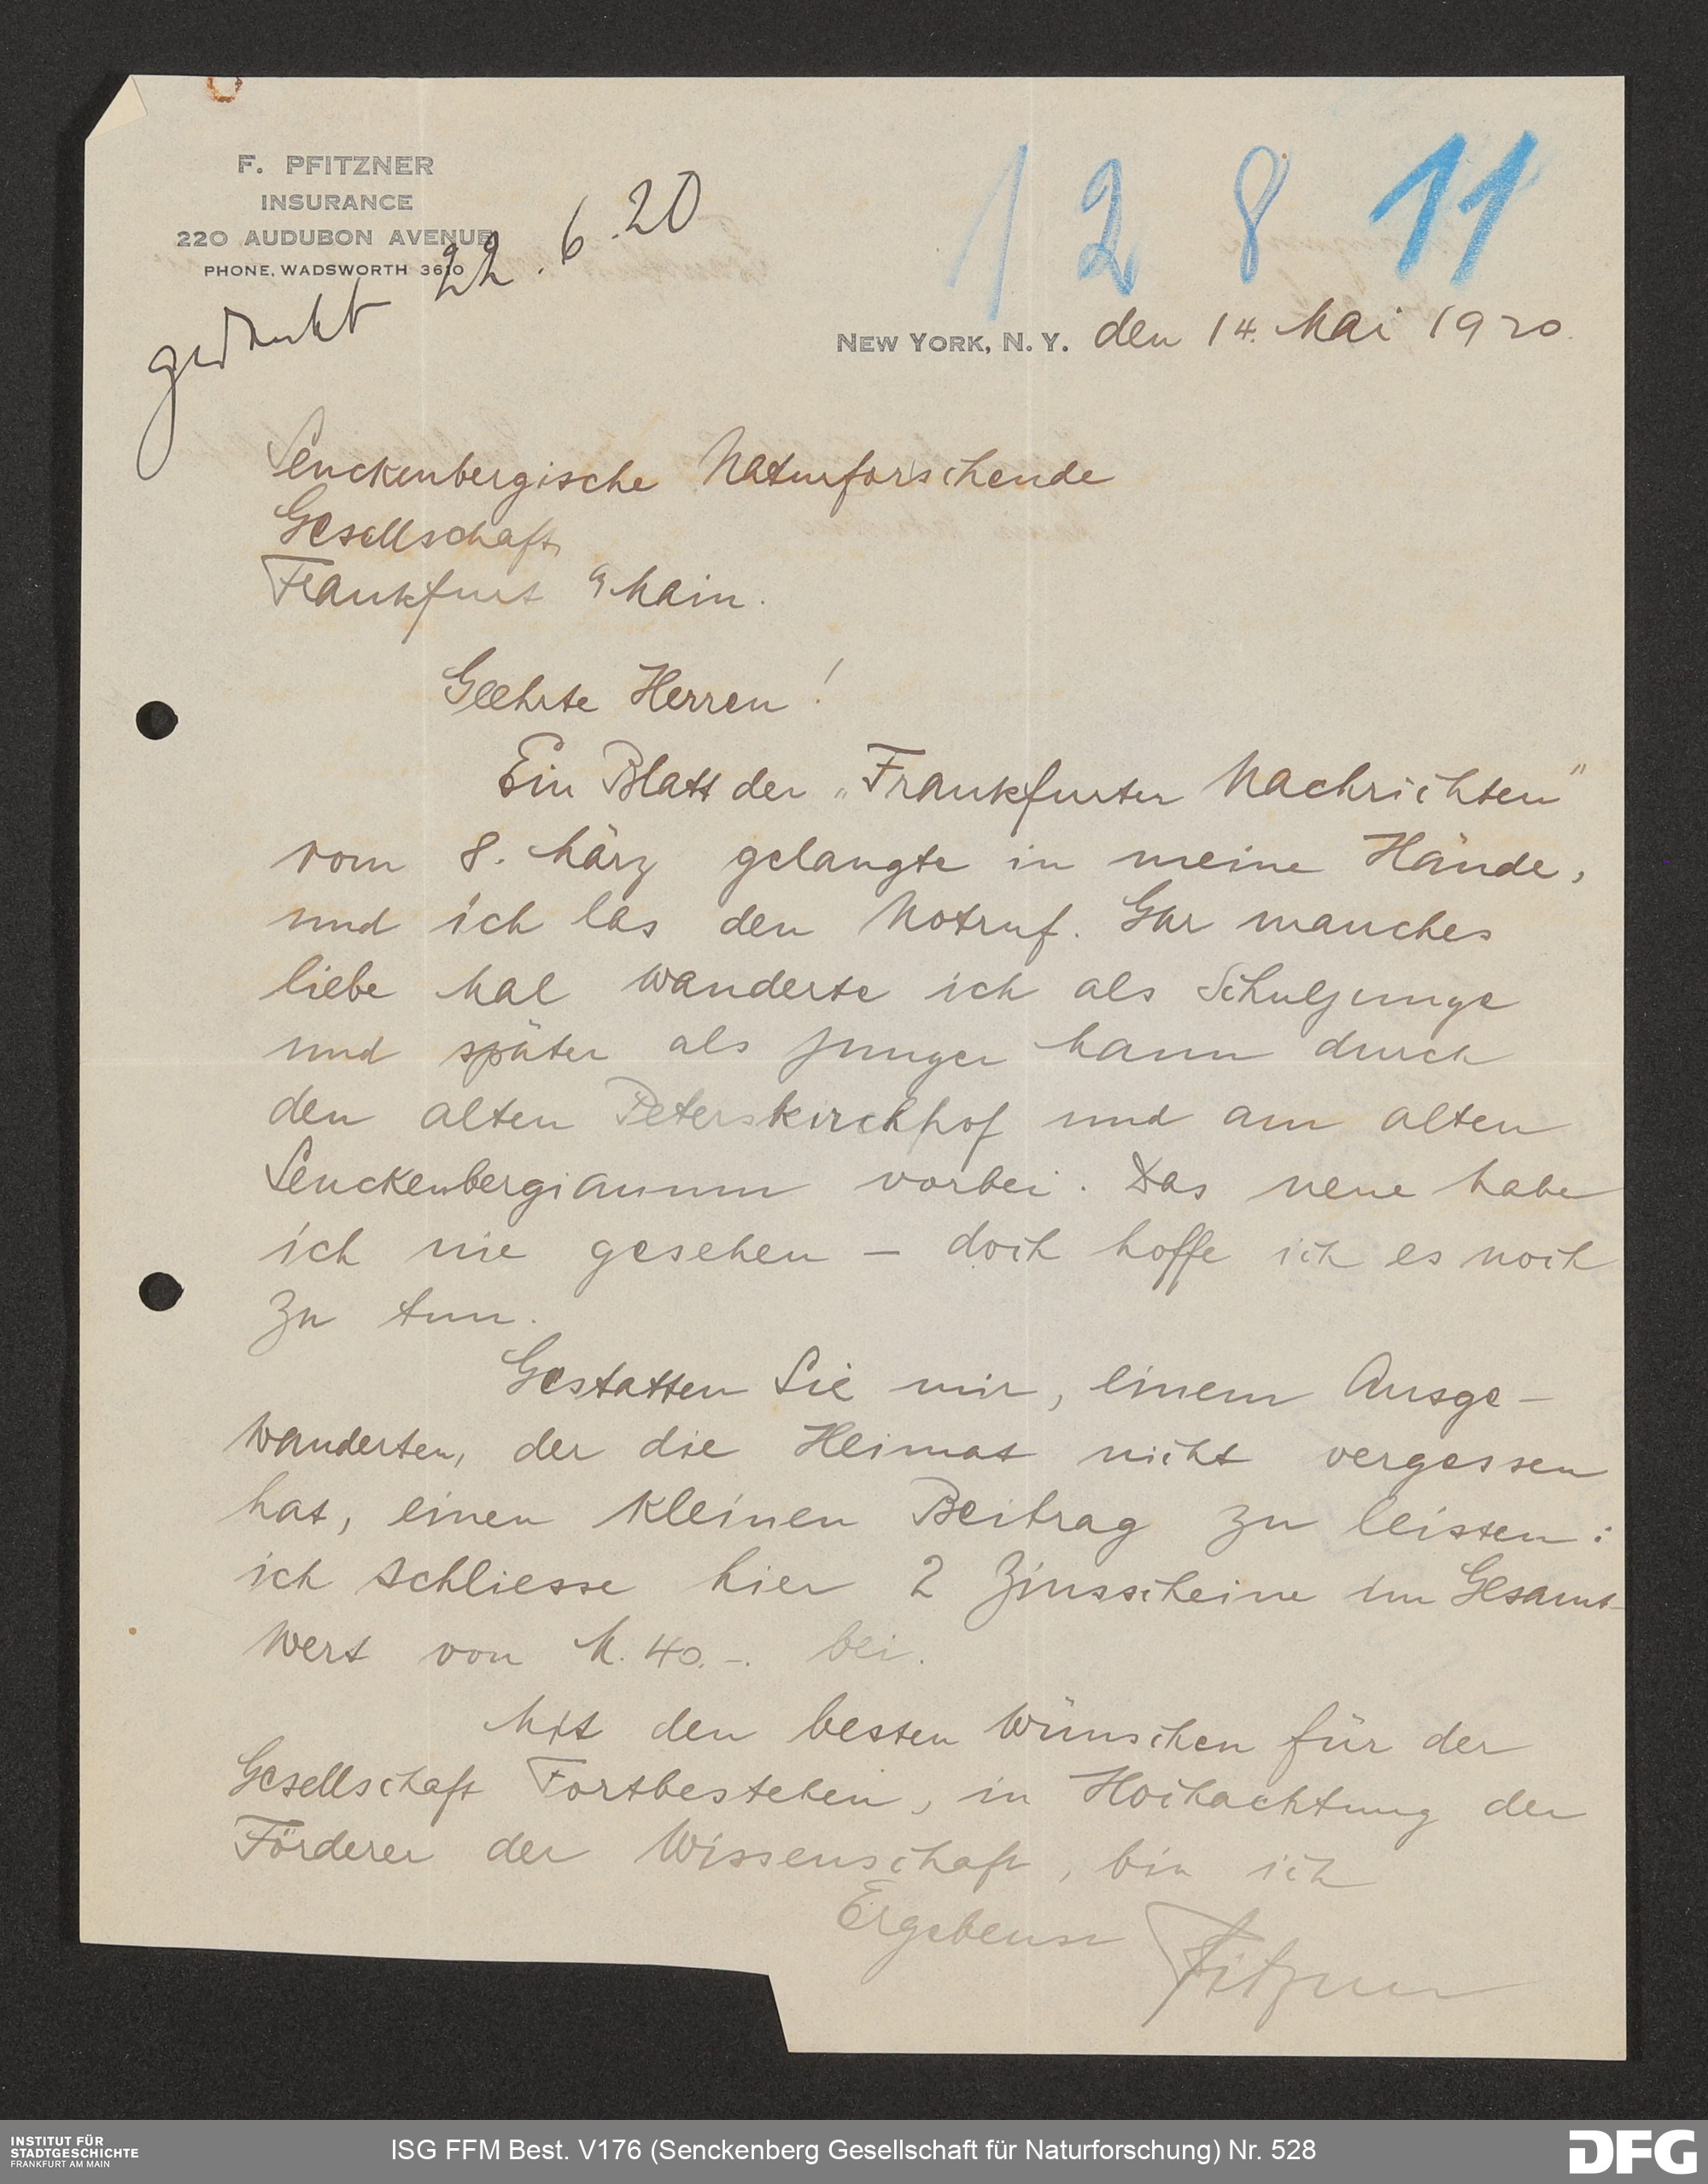 F. PFITZNER
INSURANCE
220 AUDUBON AVENUE
PHONE, WADSWORTH 3610
gedankt 22.6.20
1 2 8 11
NEW YORK, N. Y. den 14. Mai 1920.
Senckenbergische Naturforschende
Gesellschaft,
Frankfurt a/Main.
Geehrte Herren!
Ein Blatt der „Frankfurter Nachrichten"
vom 8. März gelangte in meine Hände,
und ich las den Notruf. Gar manches
liebe Mal wanderte ich als Schuljunge
und später als junger Mann durch
den alten Peterskirchhof und am alten
Senckenbergianum vorbei. Das neue habe
ich nie gesehen – doch hoffe ich es noch
zu tun.
Gestatten Sie mir, einem Ausge-
wanderten, der die Heimat nicht vergessen
hat, einen kleinen Beitrag zu leisten:
ich schliesse hier 2 Zinsscheine im Gesamt-
wert von M. 40.-. bei.
Mit den besten Wünschen für der
Gesellschaft Fortbestehen, in Hochachtung der
Förderer der Wissenschaft, bin ich
Ergebenst Pfitzner
INSTITUT FÜR
STADTGESCHICHTE
FRANKFURT AM MAIN
ISG FFM Best. V176 (Senckenberg Gesellschaft für Naturforschung) Nr. 528
DFG